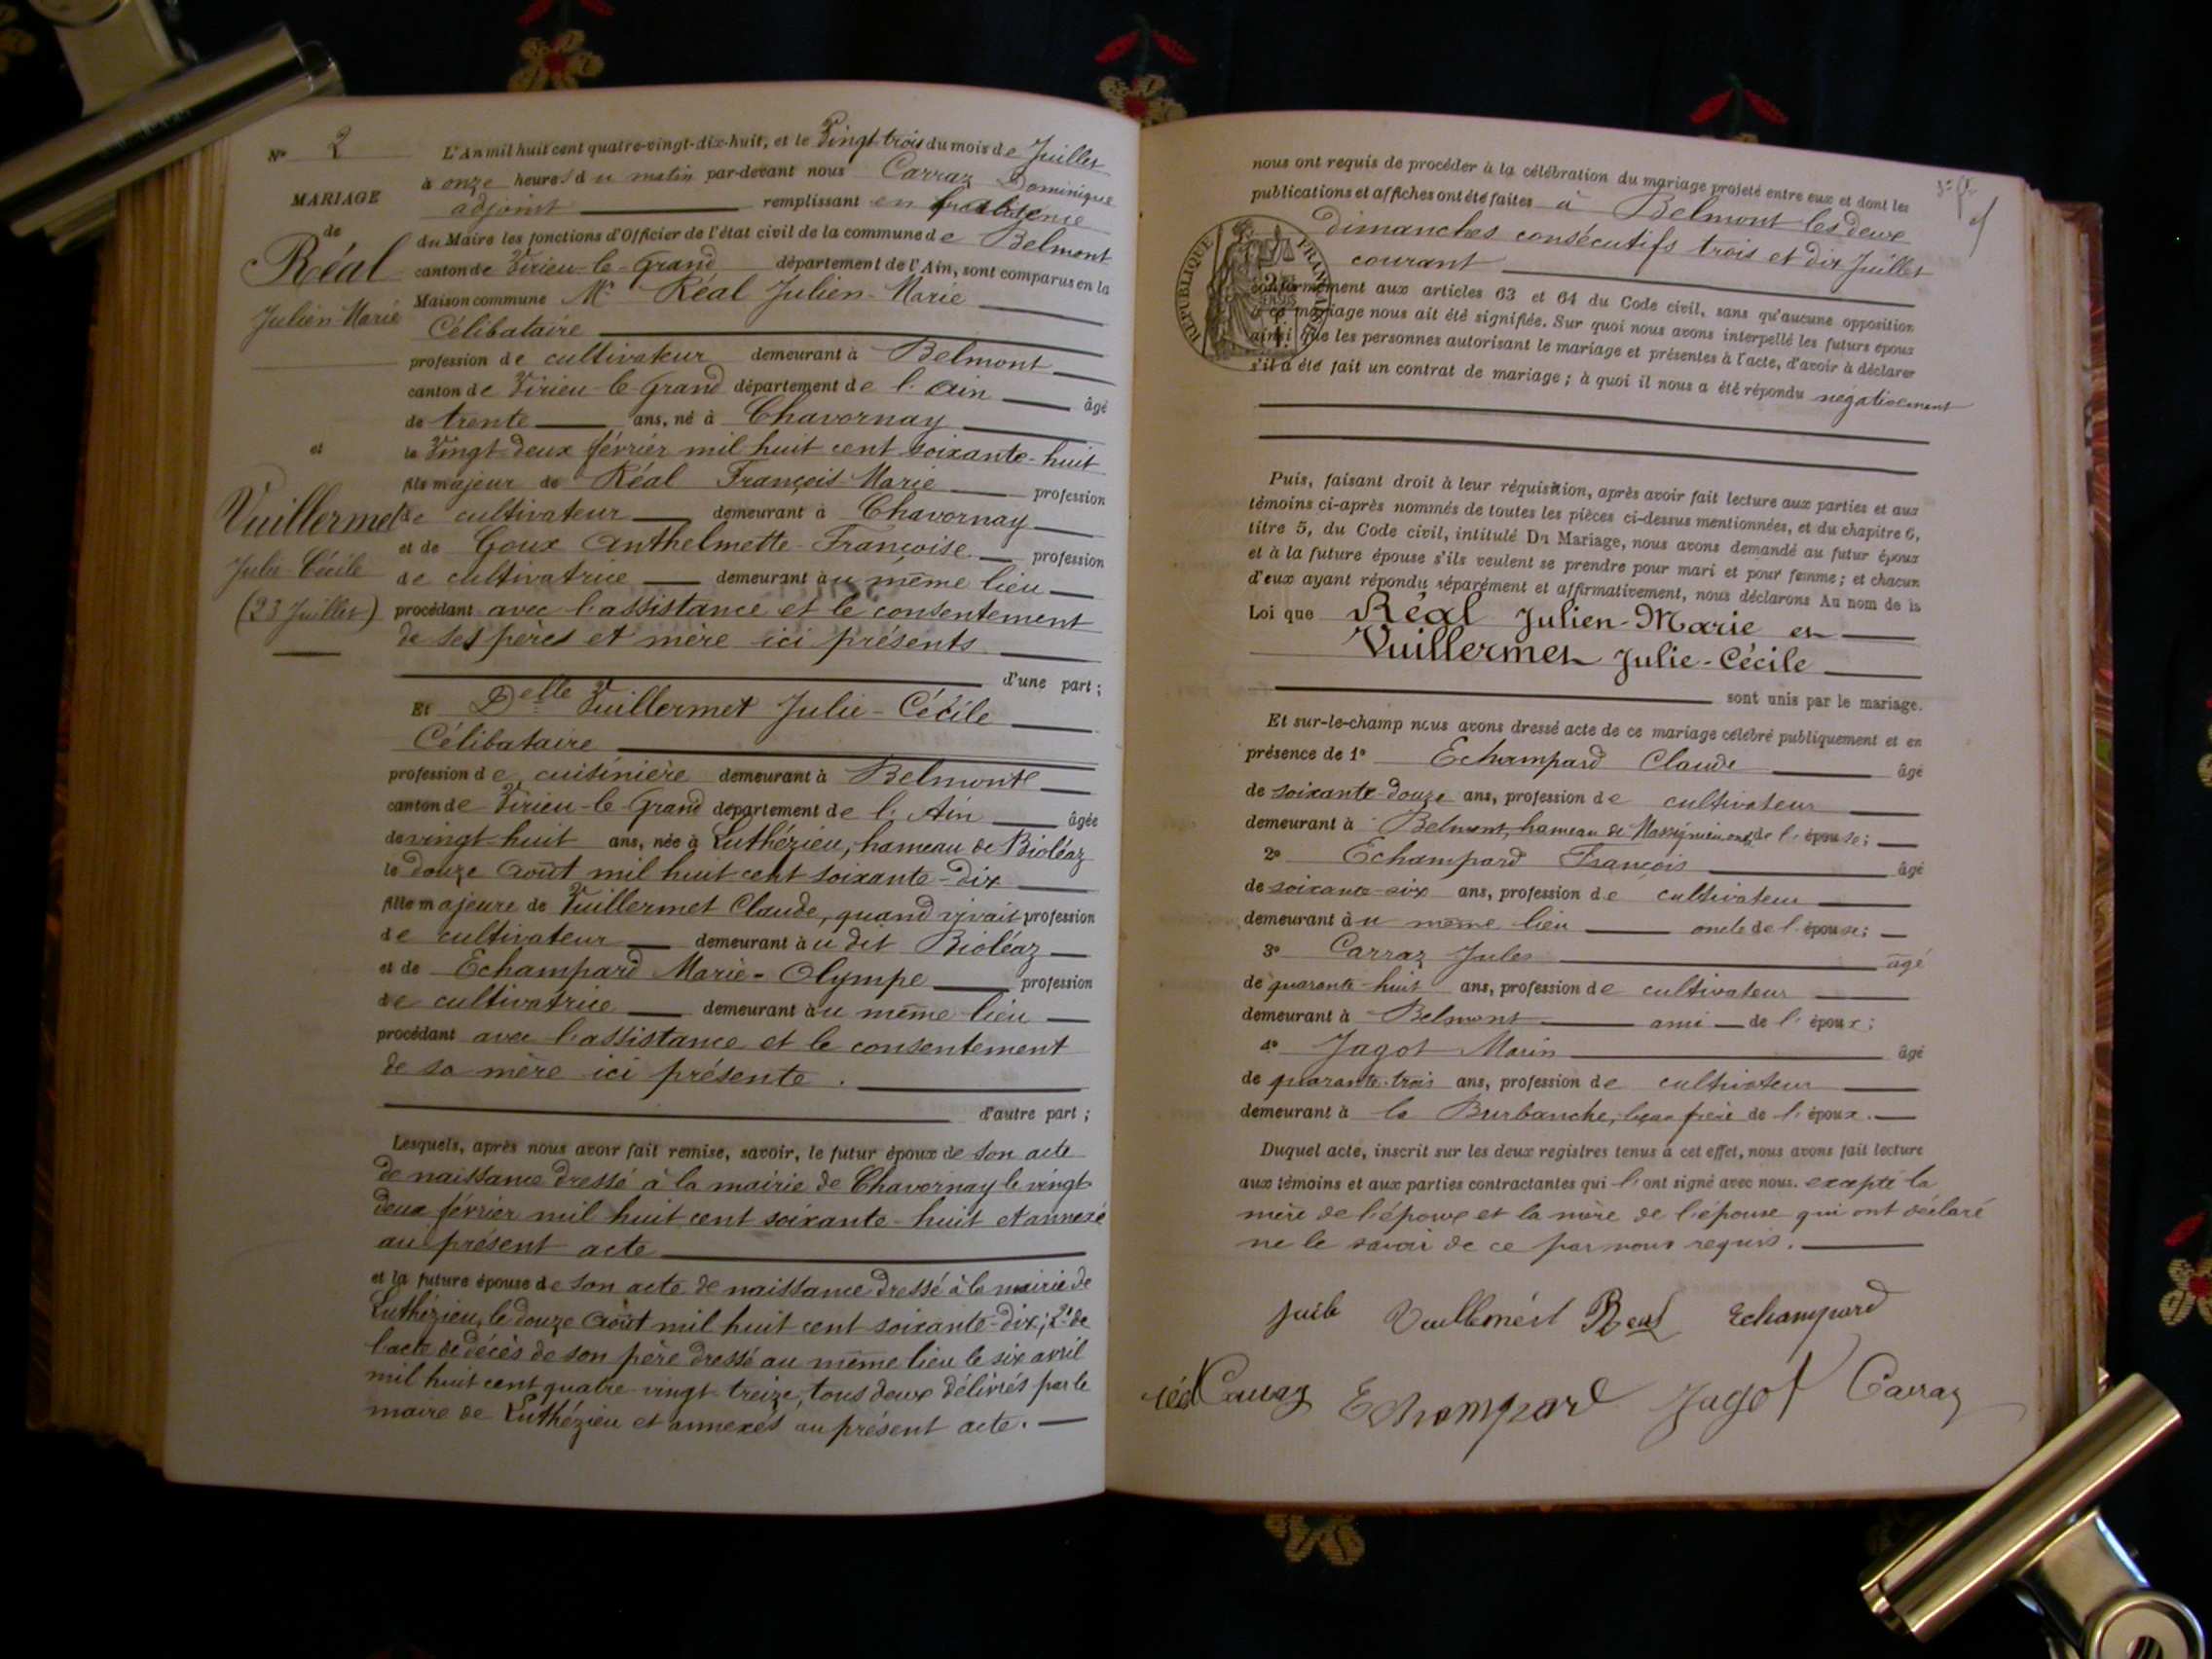 N° 2
MARIAGE
de
Réal
Julien-Marie
et
Vuillermet
Julie-Cécile
(23 Juillet)
L'An mil huit cent quatre-vingt-dix-huit, et le Vingt-trois du mois de Juillet
à onze heures du matin par-devant nous Carraz Dominique
adjoint remplissant en
du Maire les fonctions d'Officier de l'état civil de la commune de Belmont
canton de Virieu-le-Grand département de l'Ain, sont comparus en la
Maison commune Mr Réal Julien-Marie
Célibataire
profession de cultivateur demeurant à Belmont
canton de Virieu-le-Grand département de l'Ain âgé
de trente ans, né à Chavornay
le Vingt-deux février mil huit cent soixante-huit
fils majeur de Réal François-Marie profession
de cultivateur demeurant à Chavornay
et de Goux Anthelmette-Françoise profession
de cultivatrice demeurant au même lieu
procédant avec l'assistance et le consentement
de ses pères et mère ici présents
d'une part ;
Et Delle Vuillermet Julie-Cécile
Célibataire
profession de cuisinière demeurant à Belmont
canton de Virieu-le-Grand département de l'Ain âgée
de vingt-huit ans, née à Luthézieu, hameau de Bioléaz
le douze Août mil huit cent soixante-dix
fille majeure de Vuillermet Claude, quand vivait profession
de cultivateur demeurant au dit Bioléaz
et de Echampard Marie-Olympe profession
de cultivatrice demeurant au même lieu
procédant avec l'assistance et le consentement
de sa mère ici présente.
d'autre part ;
Lesquels, après nous avoir fait remise, savoir, le futur époux de son acte
de naissance dressé à la mairie de Chavornay le vingt
deux février mil huit cent soixante-huit et annexé
au présent acte
et la future épouse de son acte de naissance dressé à la mairie de
Luthézieu, le douze Août mil huit cent soixante-dix; 2° de
l'acte de décès de son père dressé au même lieu le six avril
mil huit cent quatre-vingt-treize, tous deux délivrés par le
maire de Luthézieu et annexés au présent acte.
nous ont requis de procéder à la célébration du mariage projeté entre eux et dont les
publications et affiches ont été faites à Belmont les deux
dimanches consécutifs trois et dix Juillet
courant
RÉPUBLIQUE FRANÇAISE
conformément aux articles 63 et 64 du Code civil, sans qu'aucune opposition
à ce mariage nous ait été signifiée. Sur quoi nous avons interpellé les futurs époux
ainsi que les personnes autorisant le mariage et présentes à l'acte, d'avoir à déclarer
s'il a été fait un contrat de mariage ; à quoi il nous a été répondu négativement
Puis, faisant droit à leur réquisition, après avoir fait lecture aux parties et aux
témoins ci-après nommés de toutes les pièces ci-dessus mentionnées, et du chapitre 6,
titre 5, du Code civil, intitulé Du Mariage, nous avons demandé au futur époux
et à la future épouse s'ils veulent se prendre pour mari et pour femme ; et chacun
d'eux ayant répondu séparément et affirmativement, nous déclarons Au nom de la
Loi que Réal Julien-Marie et
Vuillermet Julie-Cécile
sont unis par le mariage.
Et sur-le-champ nous avons dressé acte de ce mariage célébré publiquement et en
présence de 1° Echampard Claude âgé
de soixante-douze ans, profession de cultivateur
demeurant à Belmont, hameau de Massignieu oncle de l'épouse ;
2° Echampard François âgé
de soixante-six ans, profession de cultivateur
demeurant au même lieu oncle de l'épouse ;
3° Carraz Jules âgé
de quarante-huit ans, profession de cultivateur
demeurant à Belmont ami de l'époux ;
4° Jagot Marin âgé
de quarante-trois ans, profession de cultivateur
demeurant à la Burbanche, beau-frère de l'époux.
Duquel acte, inscrit sur les deux registres tenus à cet effet, nous avons fait lecture
aux témoins et aux parties contractantes qui l'ont signé avec nous. excepté la
mère de l'époux et la mère de l'épouse qui ont déclaré
ne le savoir de ce par nous requis.
Real Echampard
Carraz Echampard Jagot Carraz